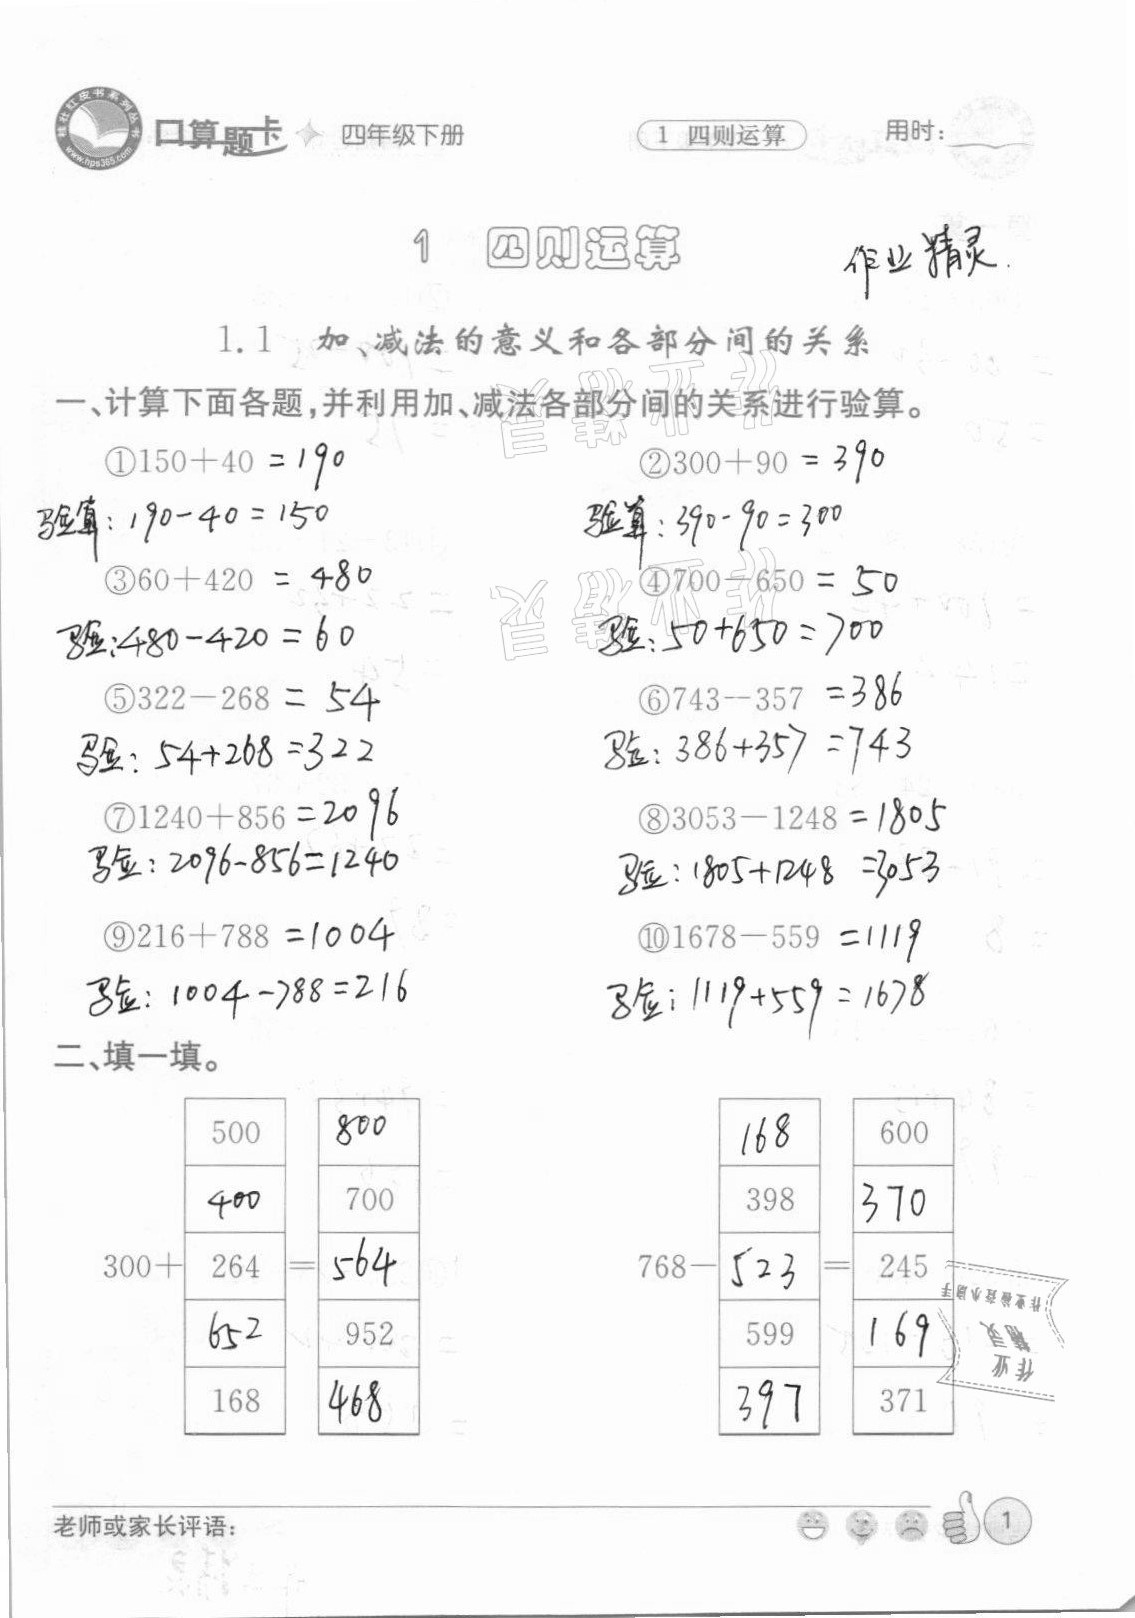 桃社红皮书系列丛书
www.hps365.com
口算题卡 四年级下册 1 四则运算 用时：
1 四则运算
作业精灵.
1.1 加、减法的意义和各部分间的关系
一、计算下面各题，并利用加、减法各部分间的关系进行验算。
①150＋40 =190 ②300＋90 = 390
验算：190-40=150 验算：390-90=300
③60＋420 = 480 ④700－650 = 50
验：480-420=60 验：50+650=700
⑤322－268 = 54 ⑥743－357 =386
验：54+268=322 验：386+357=743
⑦1240＋856 =2096 ⑧3053－1248 =1805
验：2096-856=1240 验：1805+1248 =3053
⑨216＋788 =1004 ⑩1678－559 =1119
验：1004-788=216 验：1119+559=1678
二、填一填。
500 800 168 600
400 700 398 370
300＋ 264 ＝ 564 768－ 523 ＝ 245
652 952 599 169
168 468 397 371
作业精灵
作业精灵
作业精灵
老师或家长评语： 1